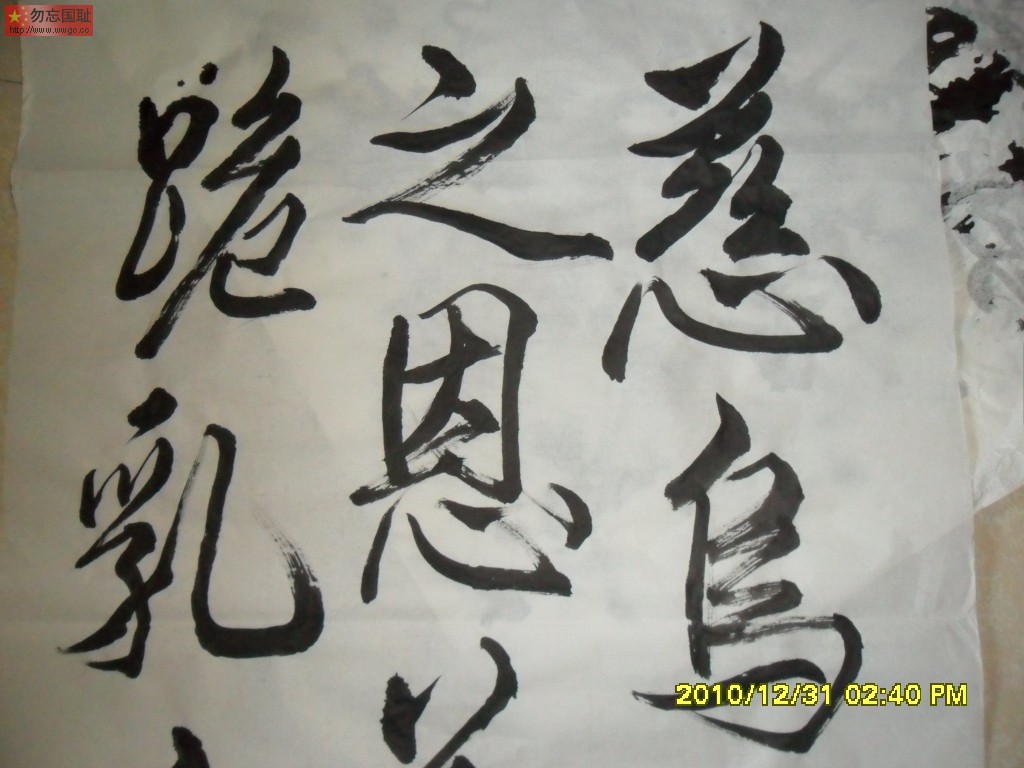 慈乌
之恩
跪乳
勿忘国耻
http://www.wwgc.co
2010/12/31 02:40 PM